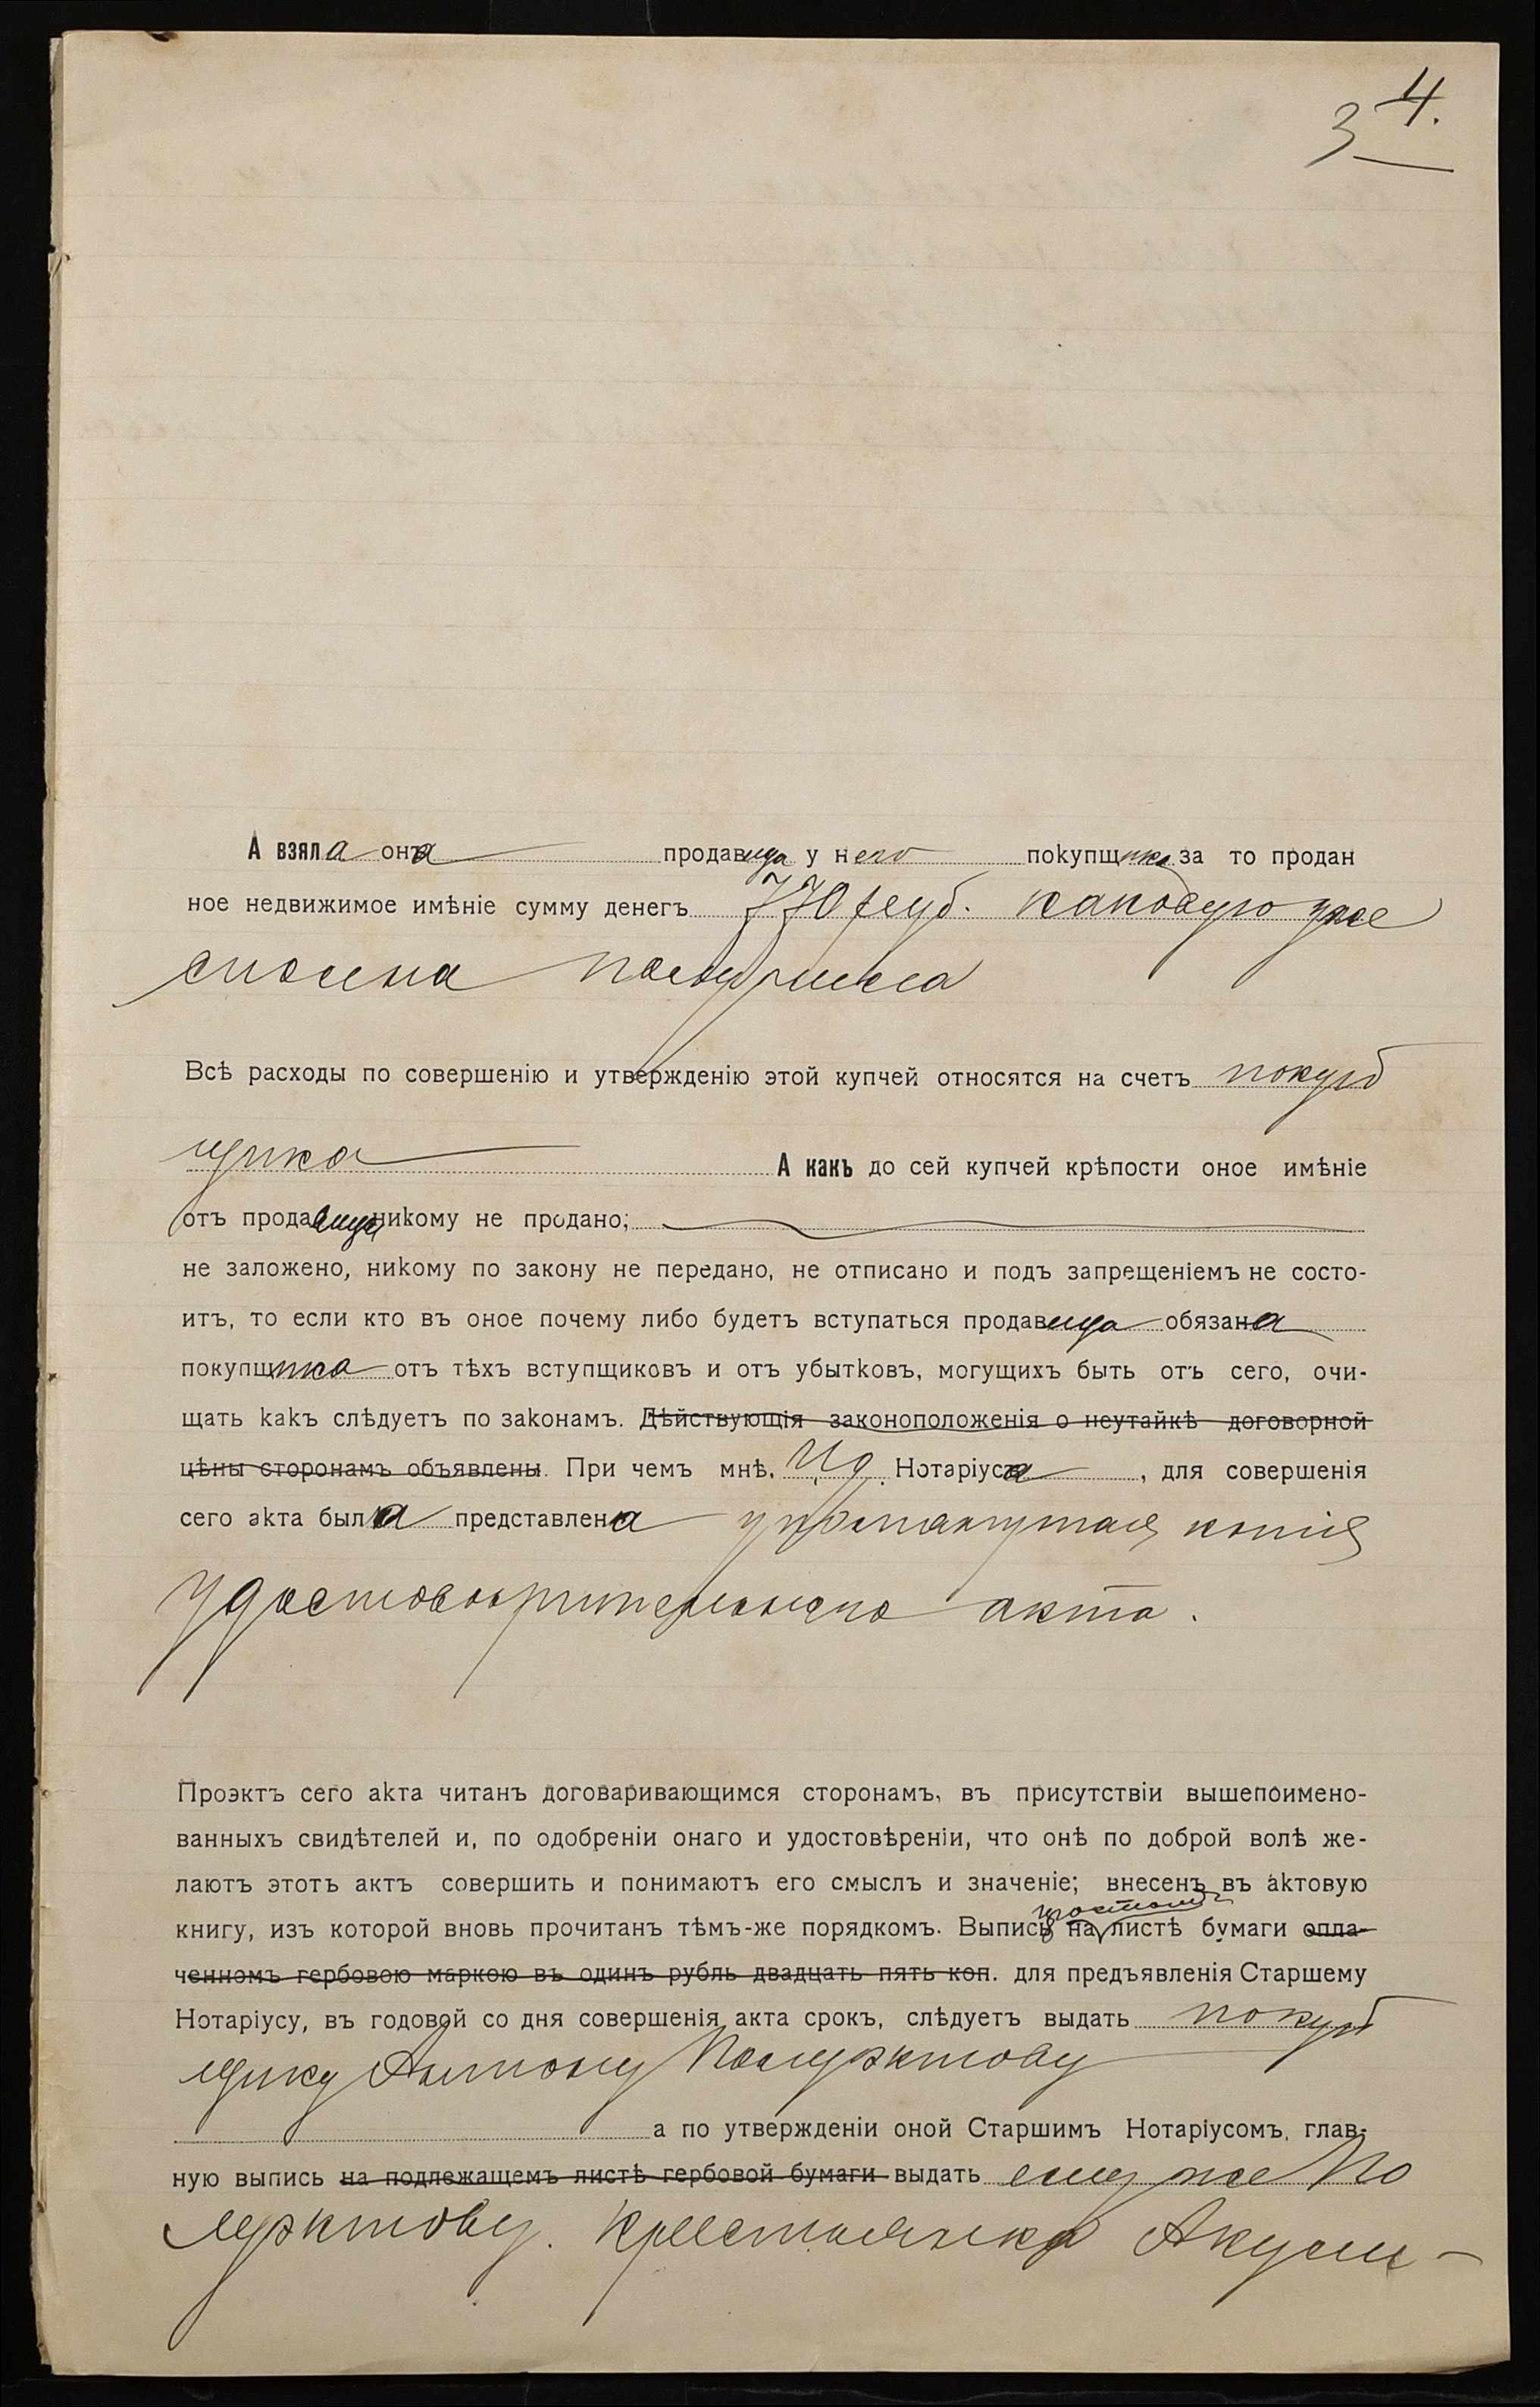 4.
3
А взяла она продавица у него покупщика за то продан
ное недвижимое имѣніе сумму денегъ 770 руб. каковую уже
сполна получила
Всѣ расходы по совершенію и утвержденію этой купчей относятся на счетъ покуп
щика А какъ до сей купчей крѣпости оное имѣніе
отъ продавицы никому не продано;
не заложено, никому по закону не передано, не отписано и подъ запрещеніемъ не состо-
итъ, то если кто въ оное почему либо будетъ вступаться продавица обязана
покупщика отъ тѣхъ вступщиковъ и отъ убытковъ, могущихъ быть отъ сего, очи-
щать какъ слѣдуетъ по законамъ. Дѣйствующія законоположенія о неутайкѣ договорной
цѣны сторонамъ объявлены. При чемъ мнѣ, Ид Нотаріуса, для совершенія
сего акта была представлена упомянутая копія
удостовѣрительнаго акта.
Проэктъ сего акта читанъ договаривающимся сторонамъ, въ присутствіи вышепоимено-
ванныхъ свидѣтелей и, по одобреніи онаго и удостовѣреніи, что онѣ по доброй волѣ же-
лаютъ этотъ актъ совершить и понимаютъ его смыслъ и значеніе; внесенъ въ актовую
простомъ
книгу, изъ которой вновь прочитанъ тѣмъ-же порядкомъ. Выпись на листѣ бумаги опла-
ченномъ гербовою маркою въ одинъ рубль двадцать пять коп. для предъявленія Старшему
Нотаріусу, въ годовой со дня совершенія акта срокъ, слѣдуетъ выдать покуп
щику Антону
а по утвержденіи оной Старшимъ Нотаріусомъ, глав-
ную выпись на подлежащемъ листѣ гербовой бумаги выдать ему же По
Крестьянка Акули-